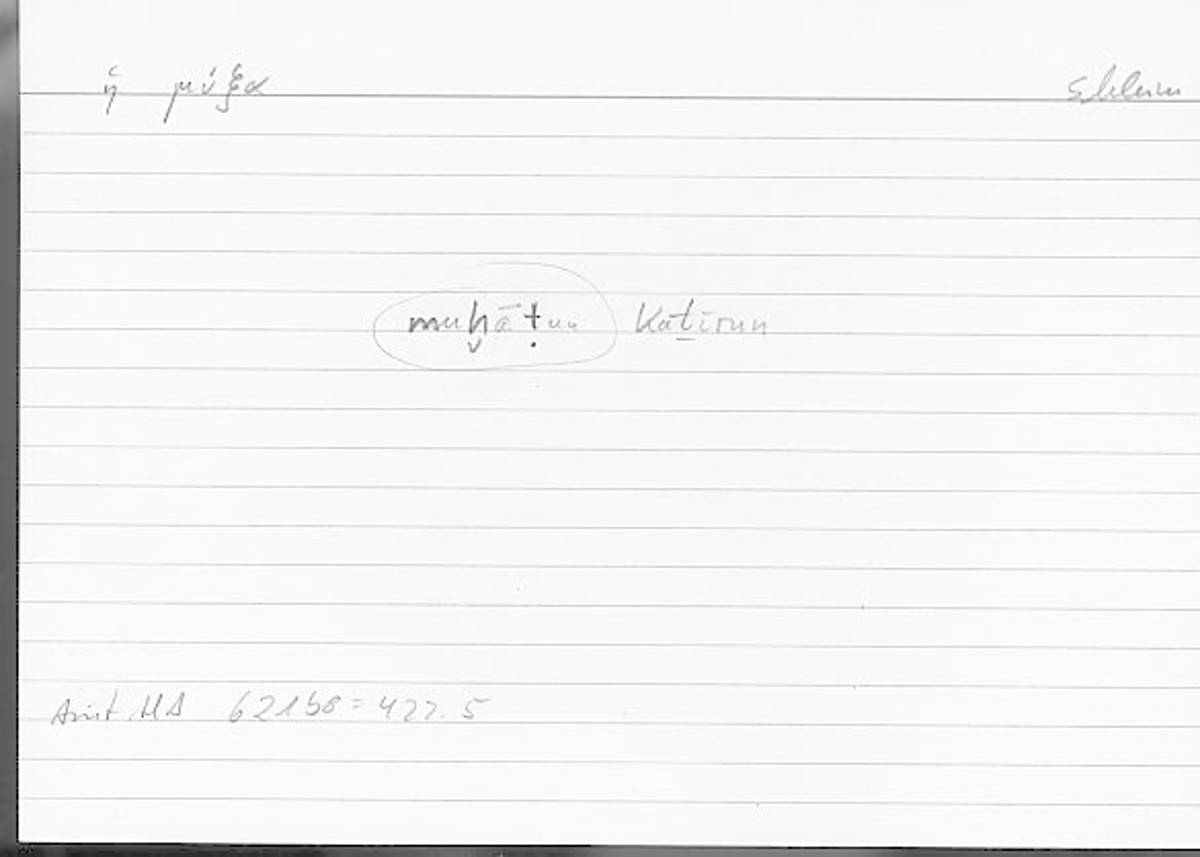 ἡ μύξα Schleim
muḫāṭun Kaṯīrun
Arist. HA 621b8 = 427.5